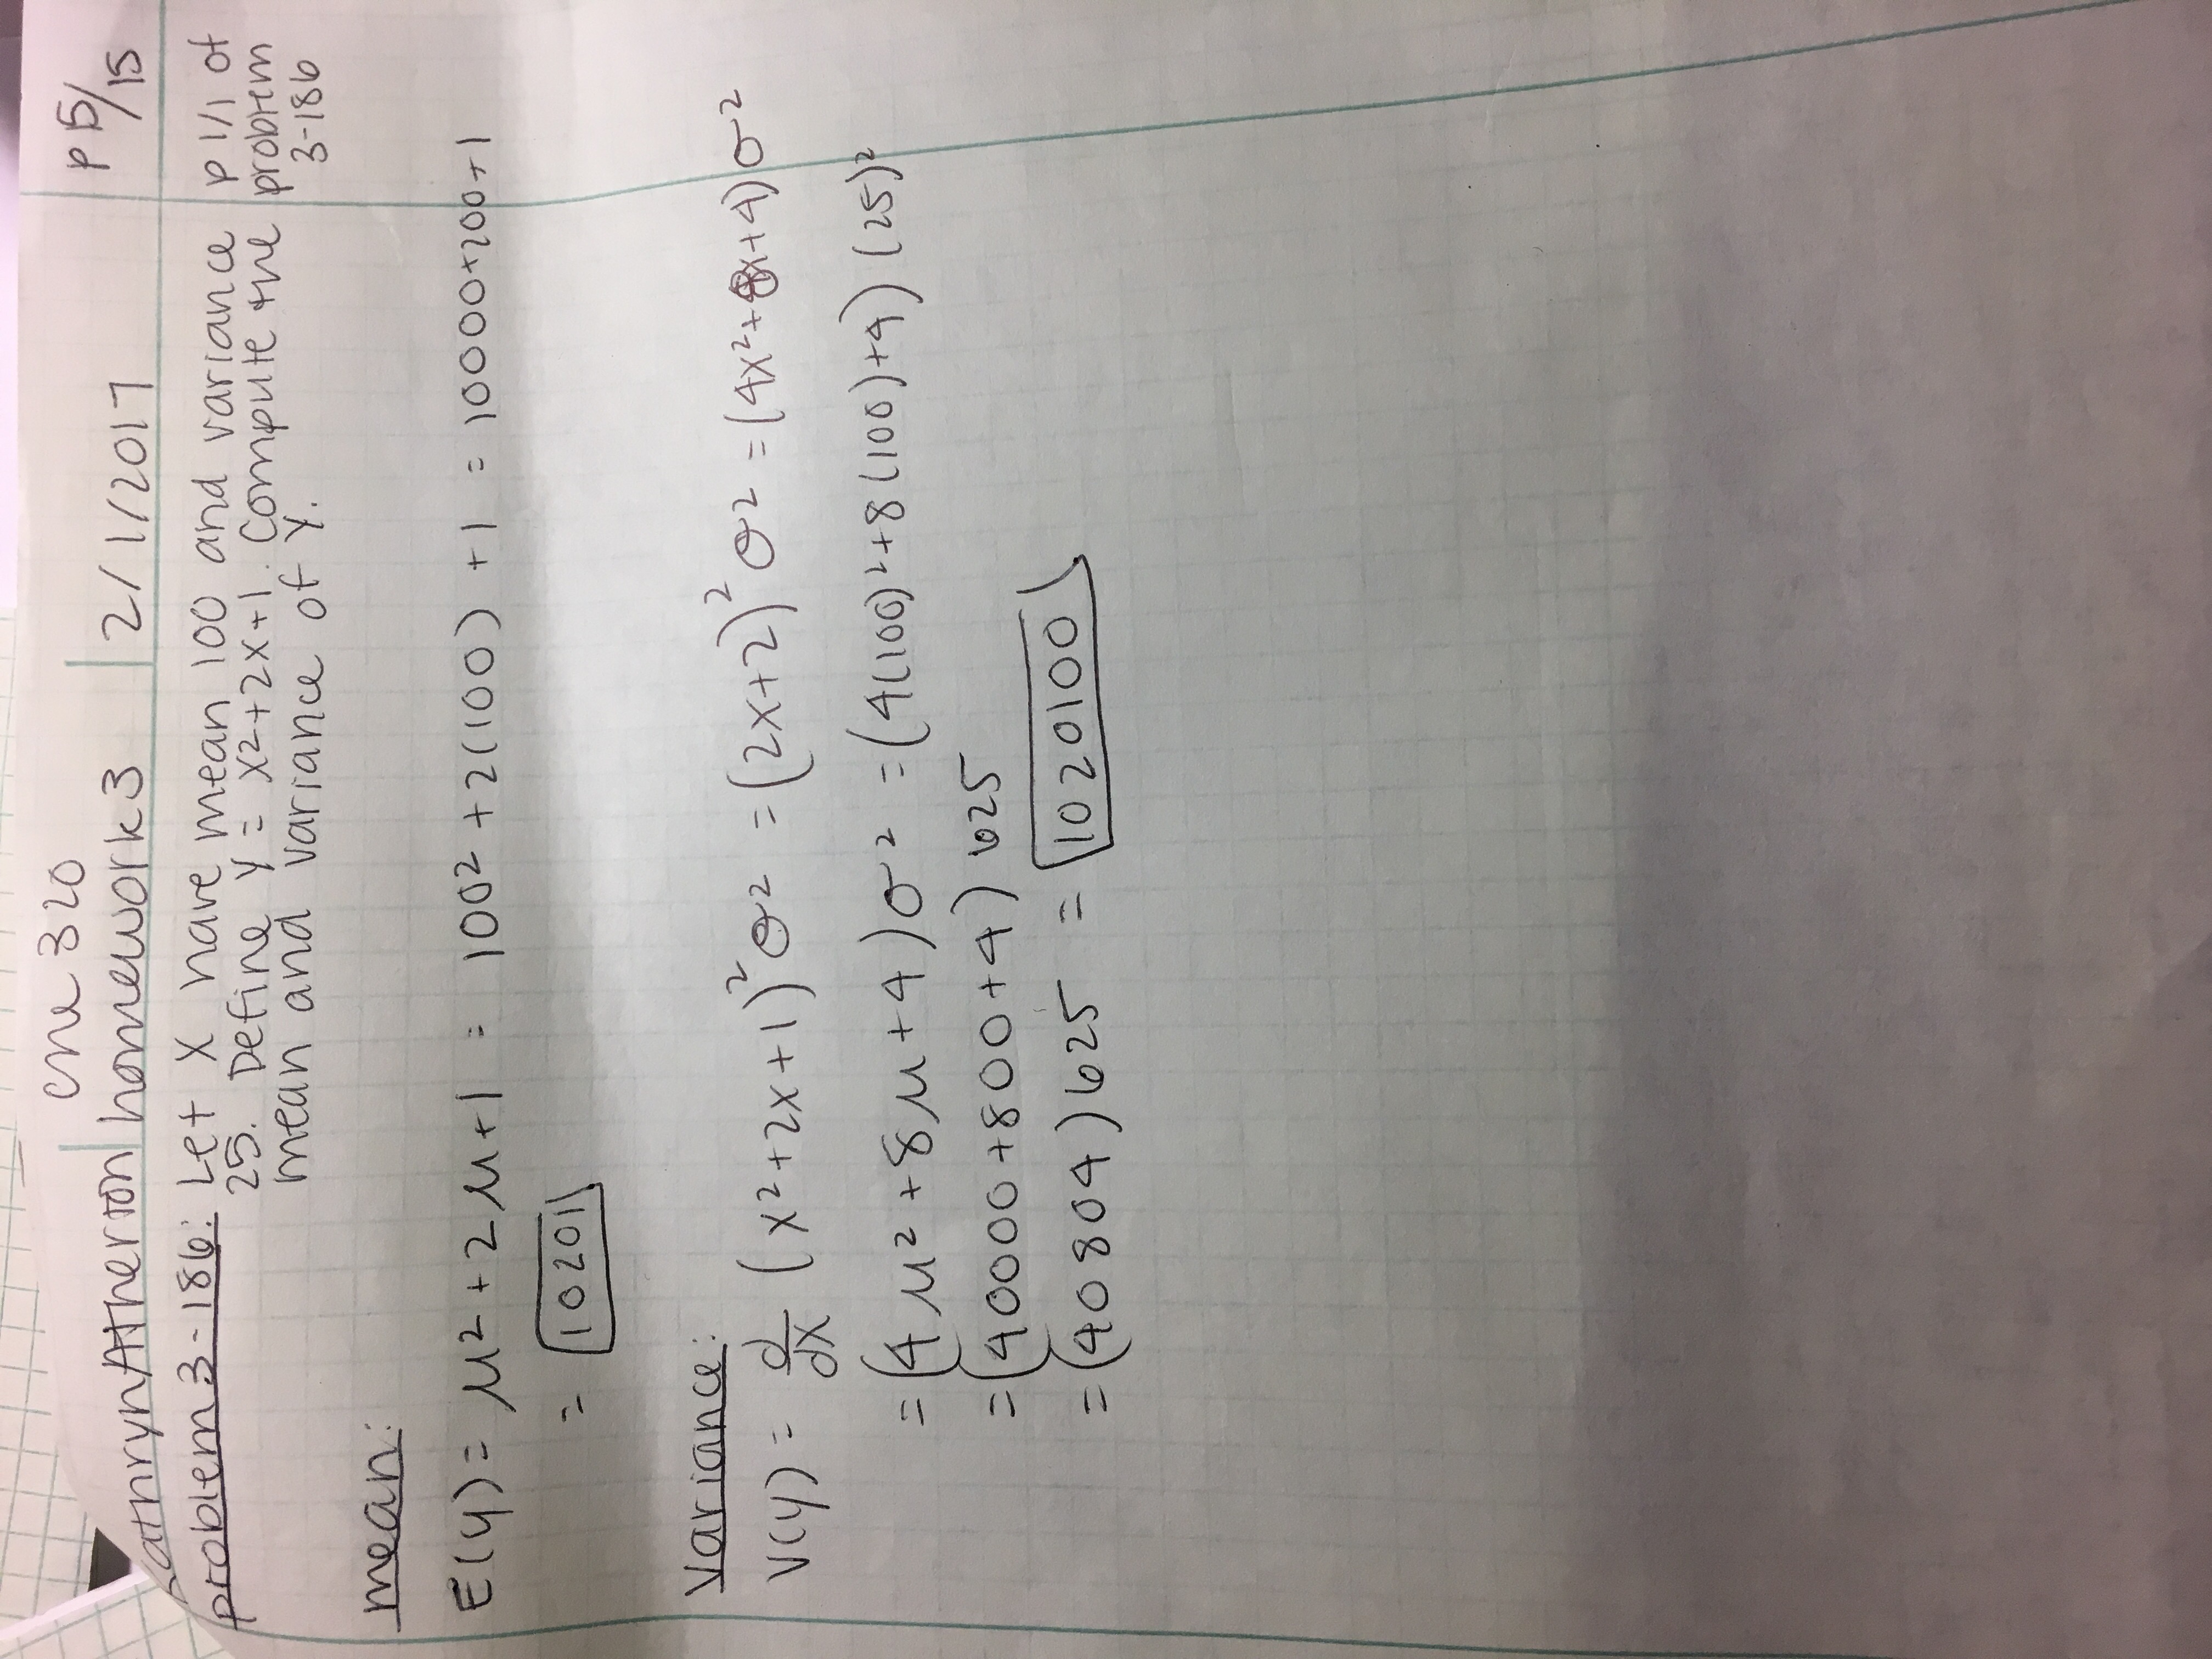 che 320
athrynAtherton homework 3 2/1/2017 p 5/15
problem 3-186: Let X have mean 100 and variance p 1/1 of
25. Define Y = X²+2X+1. Compute the problem
mean and variance of Y. 3-186
mean:
E(Y) = μ² + 2μ+1 = 100² + 2(100) + 1 = 10000+200+1
= 10201
Variance:
V(Y) = d/dX (X²+2X+1)² σ² = (2X+2)² σ² = (4X²+8X+4)σ²
= (4μ² + 8μ + 4)σ² = (4(100)²+8(100)+4) (25)²
= (40000+800+4) 625
= (40804) 625 = 1020100